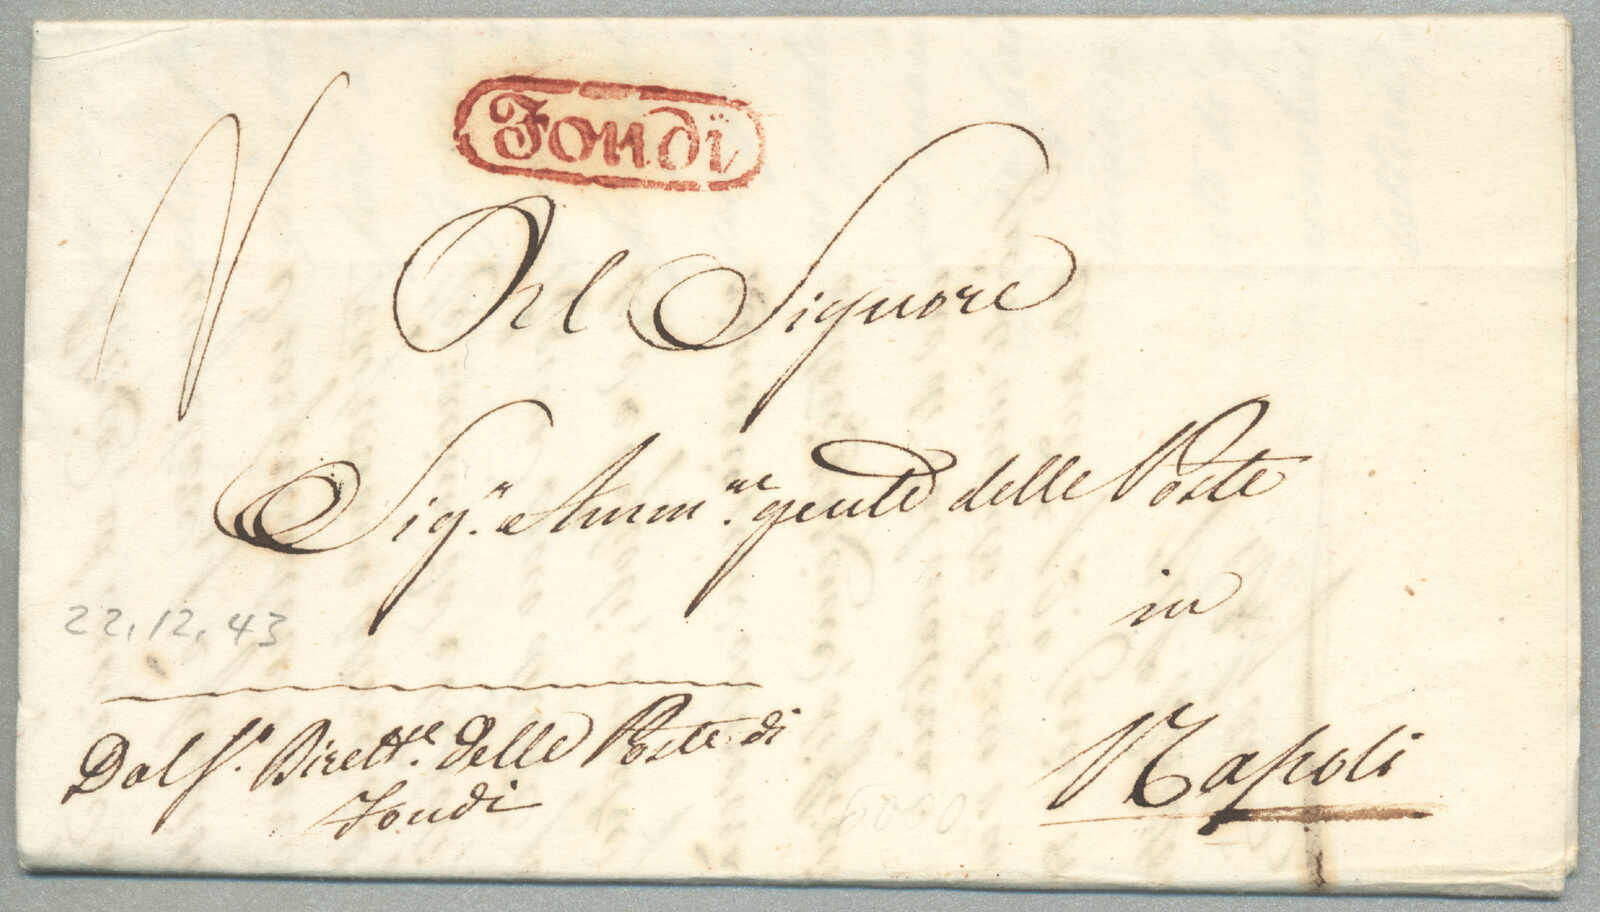 Fondi
Al Signore
Sig.r Amm.re gnle delle Poste
in
22.12.43
Napoli
Dal S.r Dirett.re delle Poste di
Fondi
6000